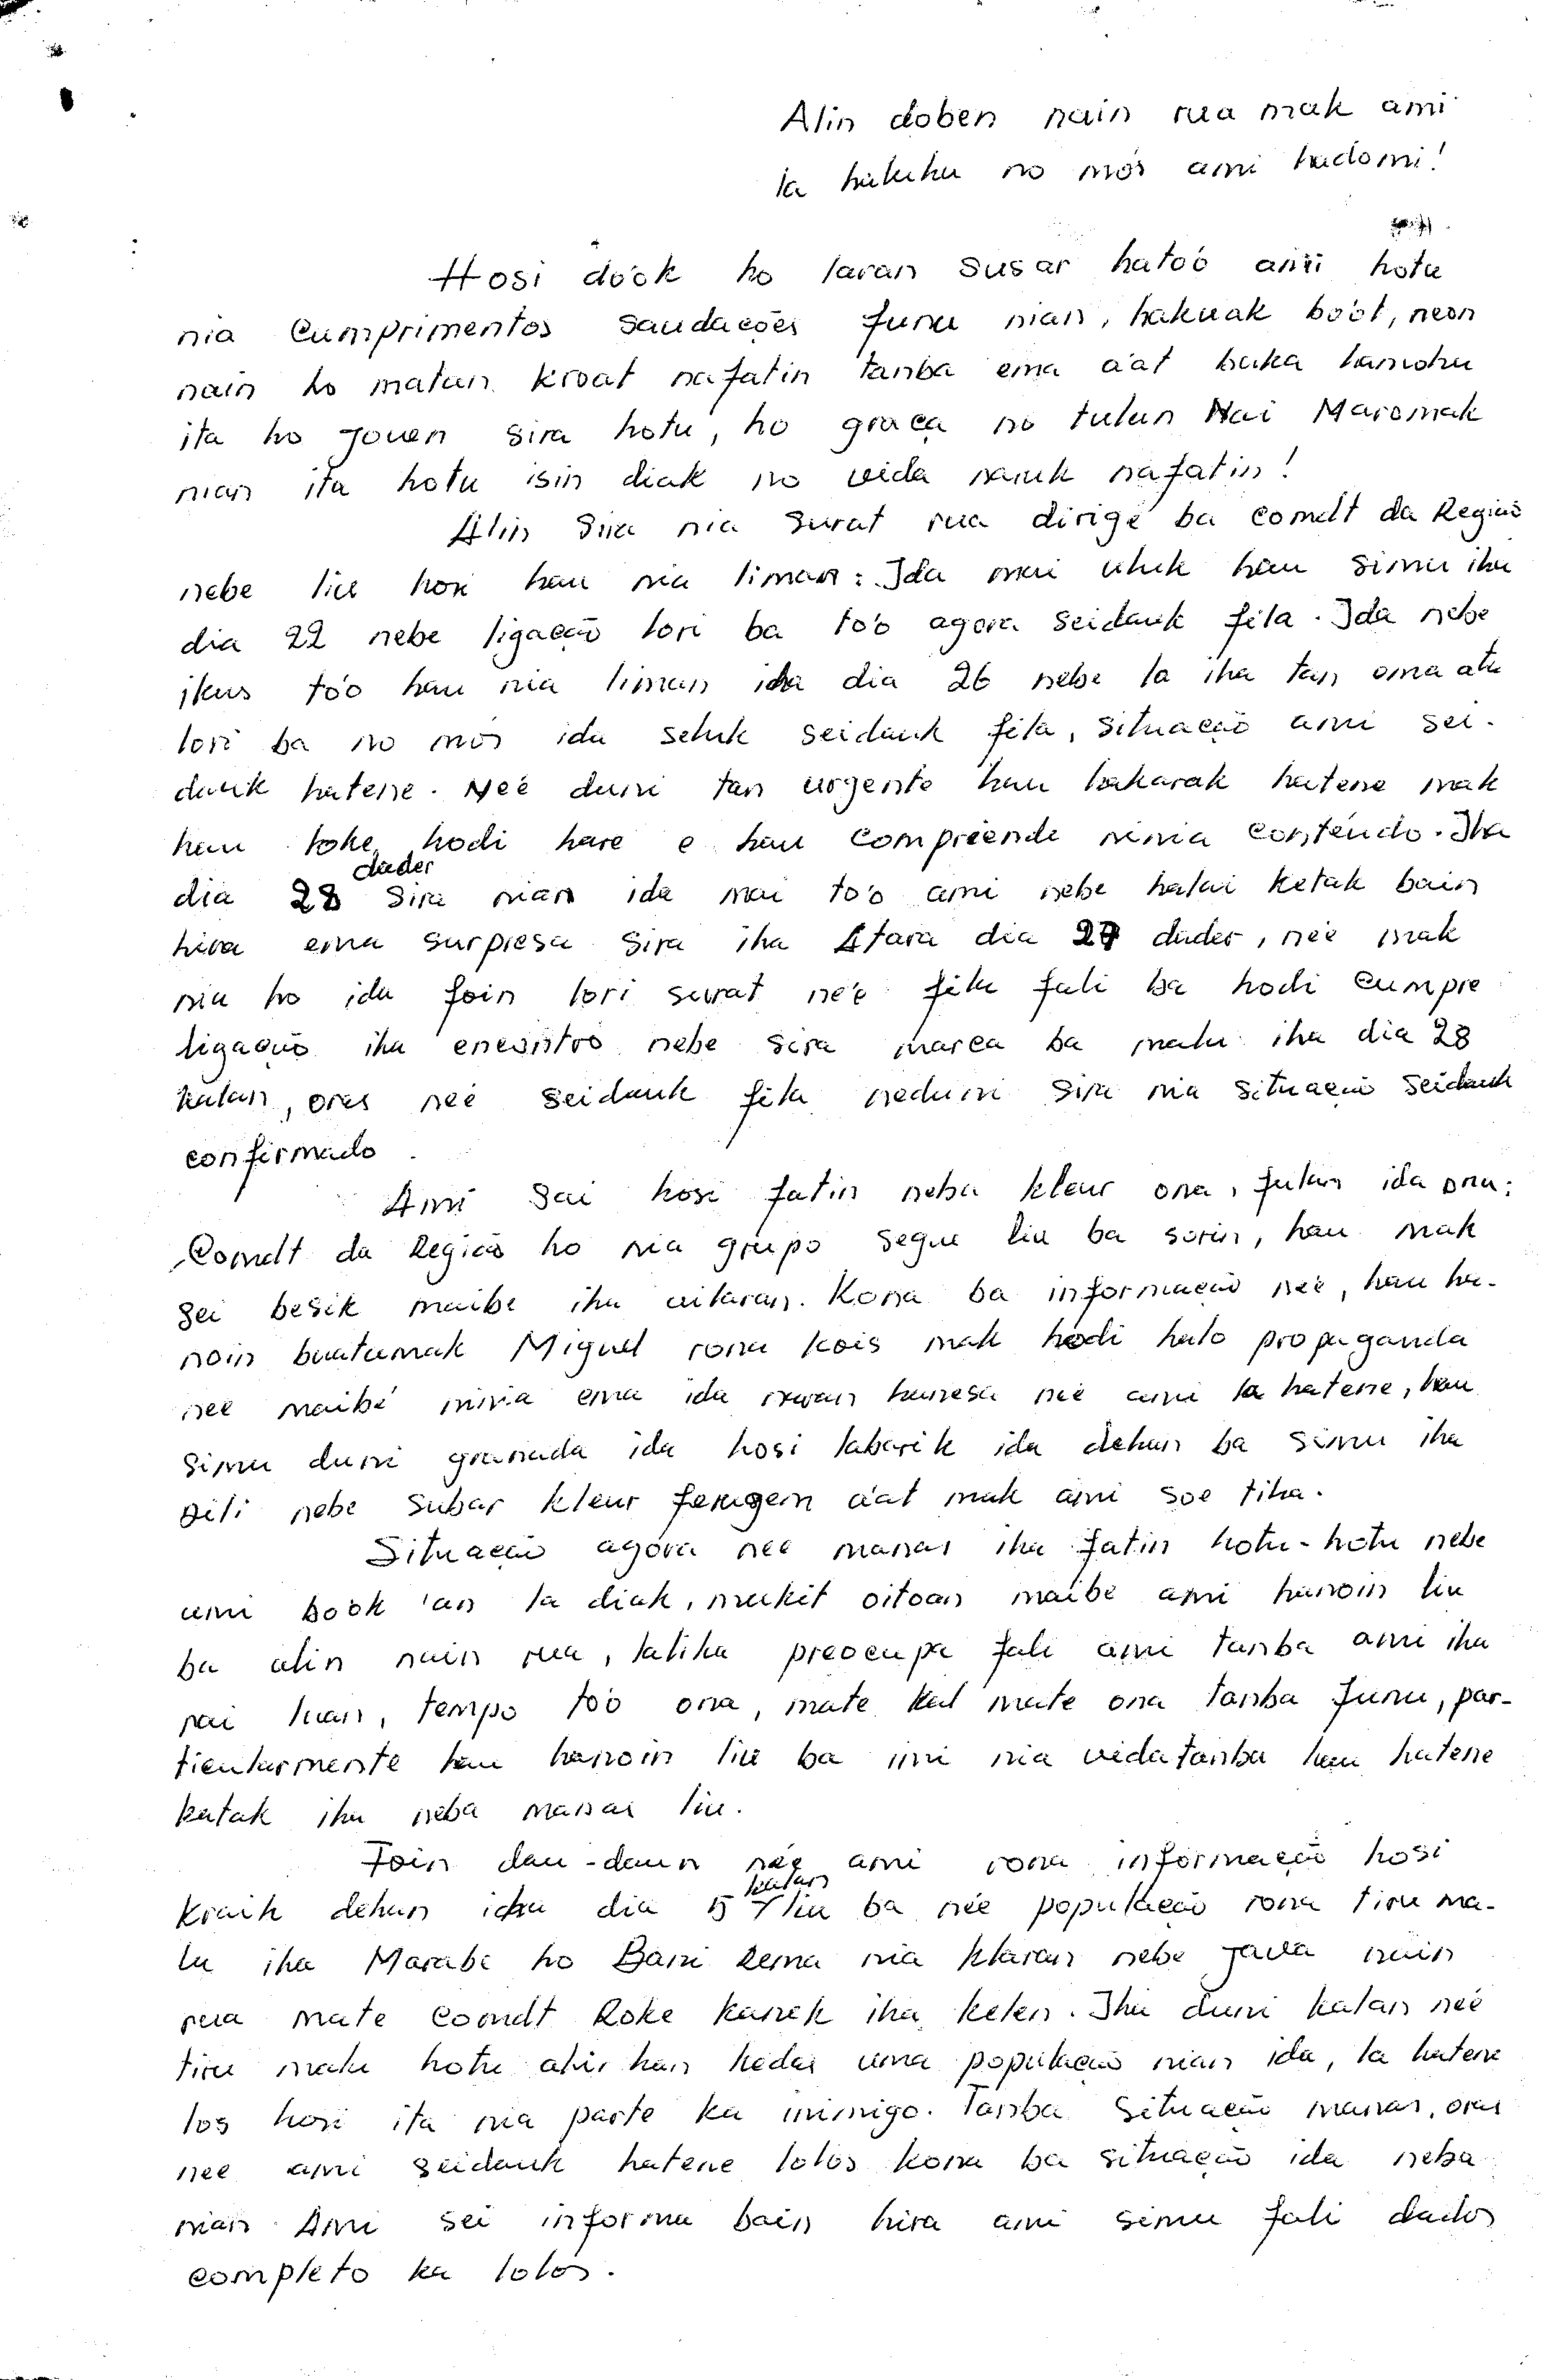 Alin doben nain rua mak ami
la haluhu no mós ami hadomi!
Hosi dóok ho laran susar hatoó ami hotu
nia cumprimentos saudações funu nian, hakuak boót, neon
nain ho matan kroat nafatin tanba ema áat buka hamohu
ita ho joven sira hotu, ho graça no tulun Nai Maromak
nian ita hotu isin diak no vida naruk nafatin!
Alin sira nia surat rua dirige ba comdt da Região
nebe liu hosi hau nia liman: Ida mai uluk hau simu iha
dia 22 nebe ligação lori ba to'o agora seidauk fila. Ida nebe
ikus to'o hau nia liman iha dia 26 nebe la iha tan ema atu
lori ba no mos ida seluk seidauk fila, situação ami sei-
dauk hatene. Neé duni tan urgente hau hakarak hatene mak
hau loke hodi hare e hau compriende ninia contéudo. Iha
dia 28 dader sira nian ida mai to'o ami nebe halai ketak bain
hira ema surpresa sira iha Atara dia 27 dader, neé mak
nia ho ida foin lori surat neé fila fali ba hodi cumpre
ligação iha encontro nebe sira marca ba malu iha dia 28
kalan, oras neé seidauk fila neduni sira nia situação seidauk
confirmado.
Ami sai hosi fatin neba kleur ona, fulan ida ona;
Comdt da Região ho nia grupo segue liu ba sorin, hau mak
sei besik maibe iha ailaran. Kona ba informação neé, hau ha-
noin buatamak Miguel rona kois mak hodi halo propaganda
neé maibé ninia ema ida naran hanesa neé ami la hatene, hau
simu duni granada ida hosi labarik ida dehan ba simu iha
Dili nebe subar kleur ferugem áat mak ami soe tiha.
Situação agora neé manas iha fatin hotu-hotu nebe
ami boók 'an la diak, mukit oitoan maibe ami hanoin liu
ba alin nain rua, laliha preocupa fali ami tanba ami iha
rai luan, tempo to'o ona, mate kal mate ona tanba funu, par-
ticularmente hau hanoin liu ba imi nia vida tanba hau hatene
katak iha neba manas liu.
Foin dau-daun neé ami rona informação hosi
kraik dehan iha dia 5 kalan liu ba neé população rona tiru ma-
lu iha Marabe ho Bani Lema nia klaran nebe Java nain
rua mate comdt Roke kanek iha kelen. Iha duni kalan neé
tiru malu hotu ahi han kedas uma população nian ida, la hatene
los hosi ita nia parte ka inimigo. Tanba situação manas, oras
nee ami seidauk hatene lolos kona ba situação ida neba
nian. Ami sei informa bain hira ami simu fali dados
completo ka lolos.